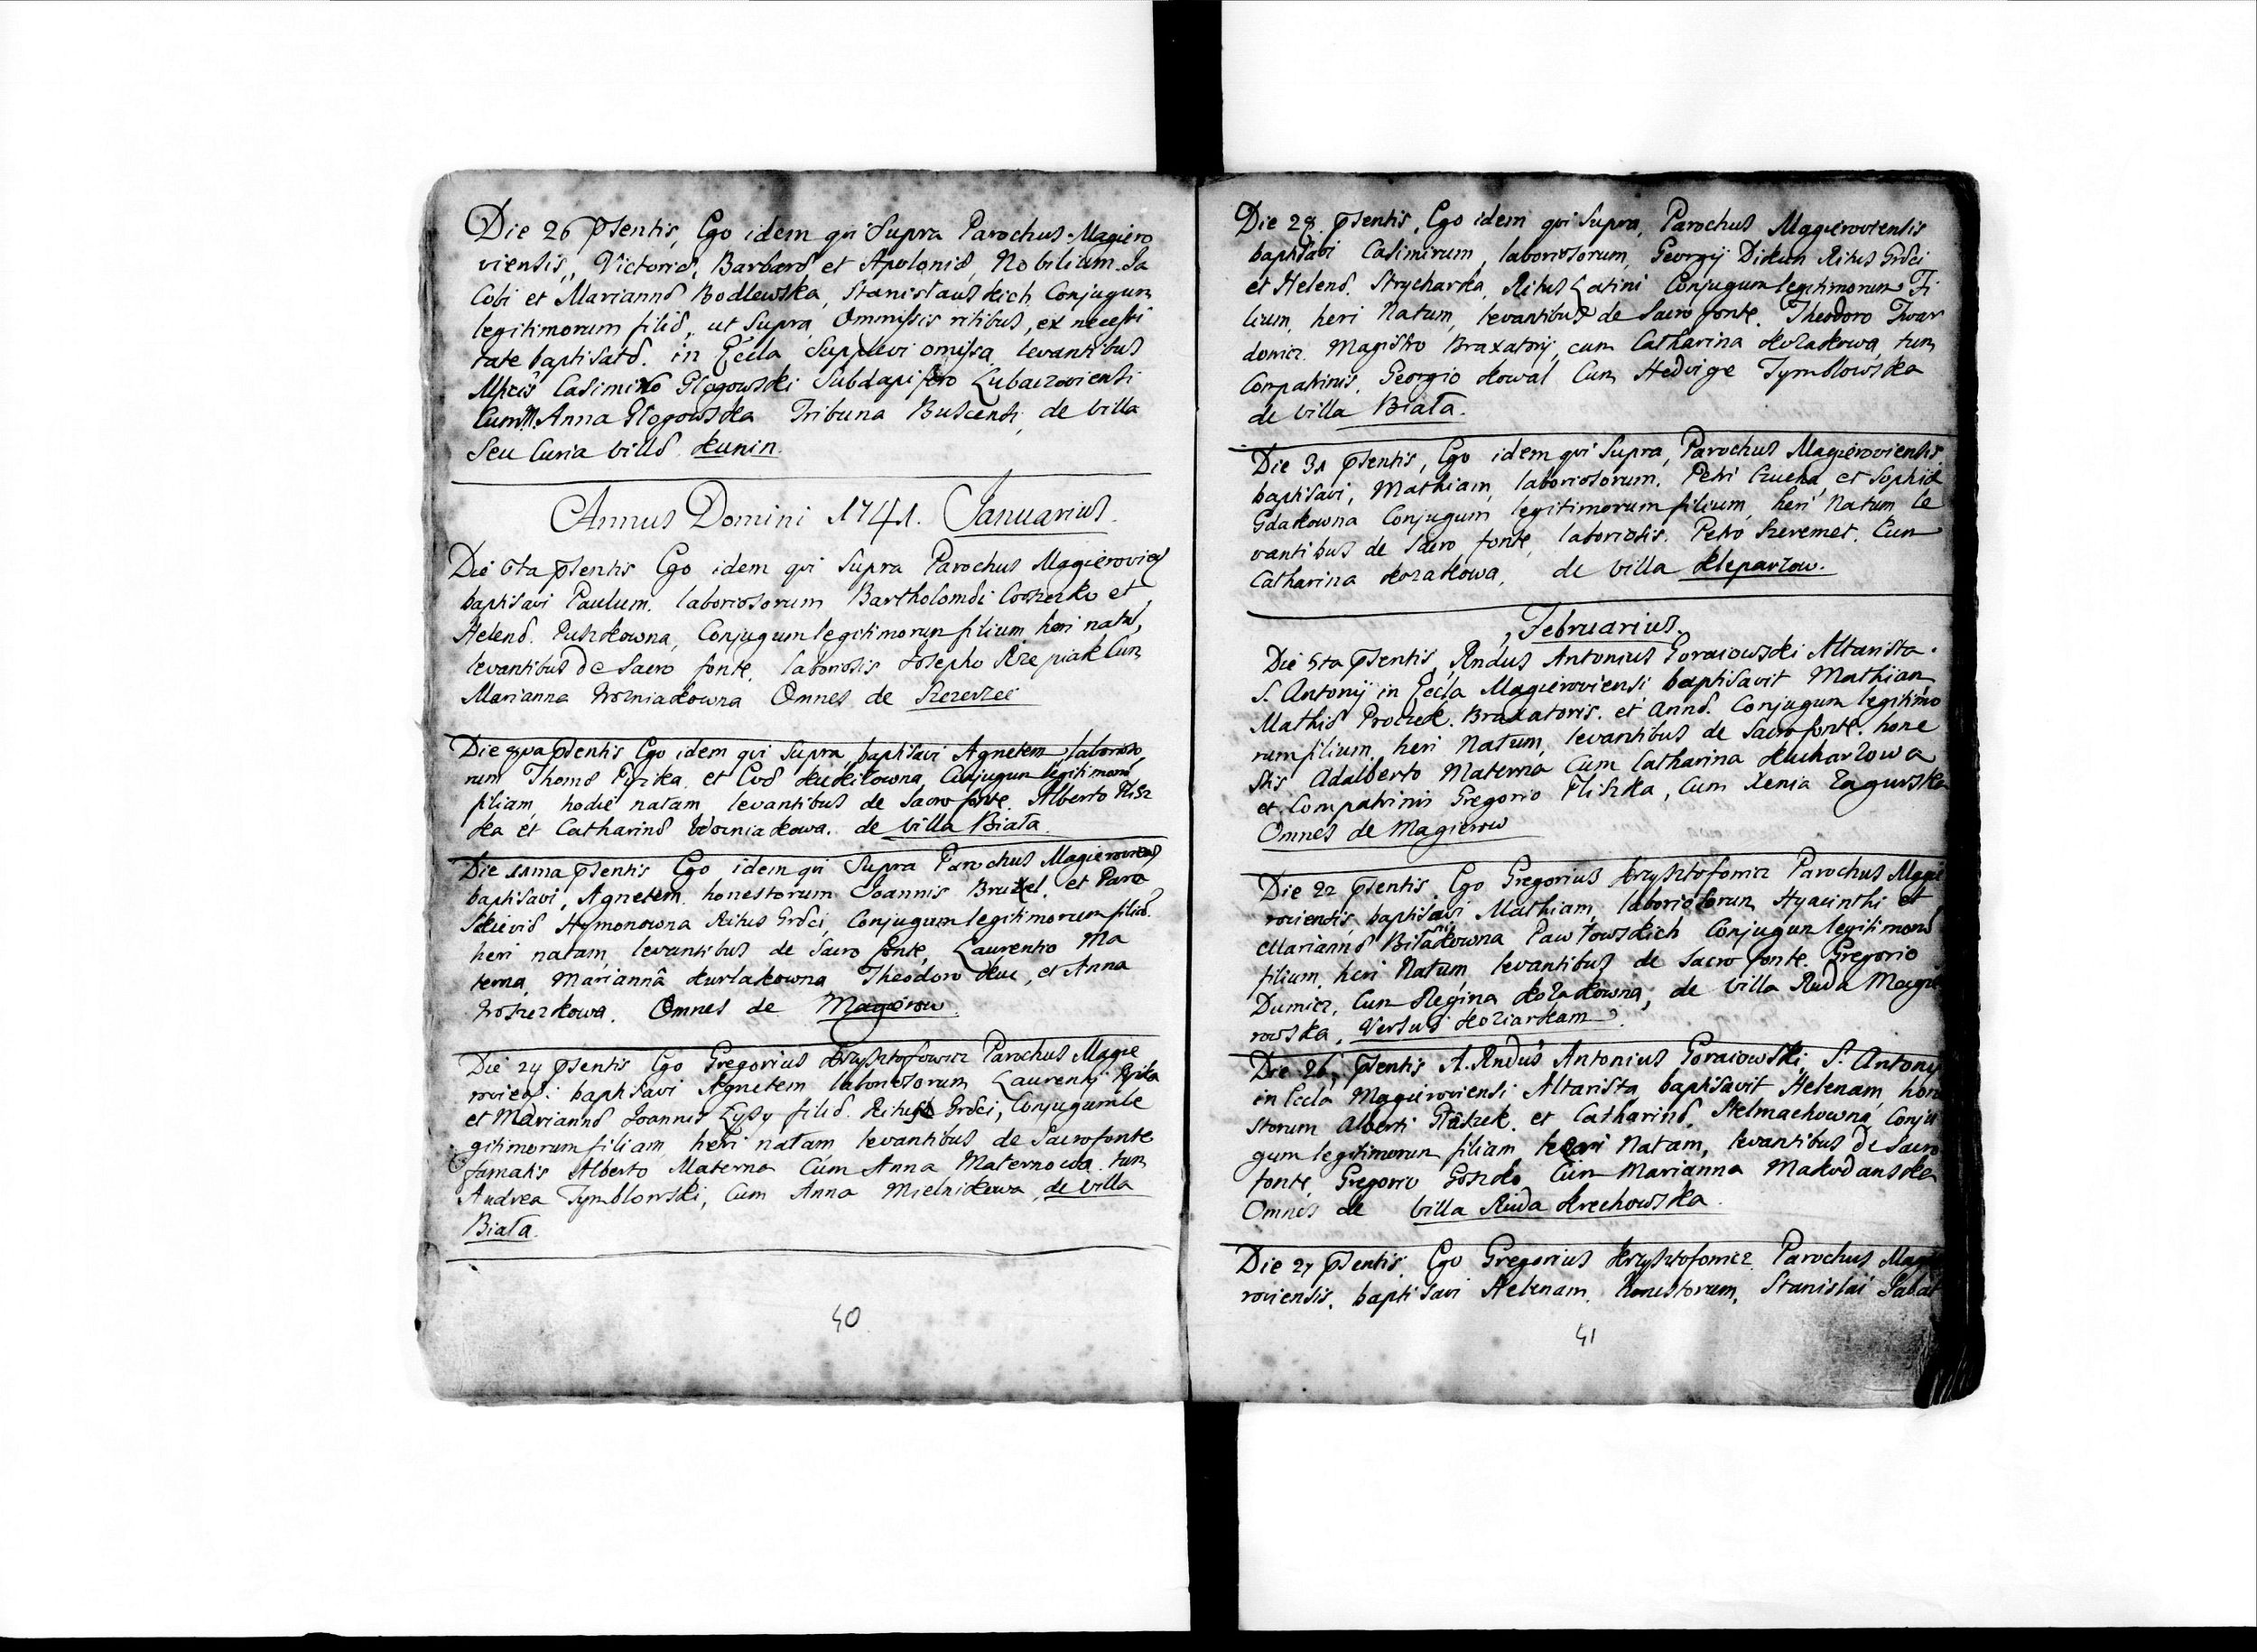 Die 26 pſentis, Ego idem qui Supra Parochus Magiero
viensis, Victoriæ, Barbaræ et Apoloniæ, Nobilium Ja
Cobi et Mariannæ Bodlewska, Stanisławskich Conjugum
legitimorum filiæ, ut Supra Ommissis ritibus, ex necessi
tate baptisatæ. in Eccla Supplevi omissa levantibus
Casimiro Głogowski Subdapifero Lubaczoviensi
Cum M. Anna Głogowska Tribuna Buscensi, de villa
Seu Curia villæ Kunin.
Annus Domini 1741. Januarius.
Die 6ta pſentis Ego idem qui Supra Parochus Magierovien
baptisavi Paulum. laboriosorum Bartholomæi et
Helenæ. Puszkowna, Conjugum legitimorum filium heri natū,
levantibus de Sacro fonte. laboriosis Josepho Rzepiak Cum
Marianna Wozniakowna Omnes de Szczerzec
Die 8va pſentis Ego idem qui Supra, baptisavi Agnetem laborioso
rum Thomæ Pyzika et Evæ Kukiłowna, Conjugum legitimorū
filiam, hodie natam, levantibus de Sacro fonte. Alberto
ka et Catharinæ Wozniakowa. de villa Biała
Die 11ma pſentis Ego idem qui Supra Parochus Magierovien
baptisavi, Agnetem. honestorum Joannis Bruzel. et Para
sckieviæ Hymonowna Ritus Græci, Conjugum legitimorum filiā.
heri natam levantibus de Sacro fonte, Laurentio Ma
terna, Mariannâ Kurlakowna Theodoro Kuc, et Anna
Woszczkowa. Omnes de Magierow.
Die 24 pſentis Ego Gregorius Krzysztofowicz Parochus Magie
rovien: baptisavi Agnetem laboriosorum Laurentij Pyzika
et Mariannæ Joannis Łysy filiæ. Ritus Græci, Conjugum le
gitimorum filiam heri natam levantibus de Sacro fonte
famatis Alberto Materna Cum Anna Maternowa. tum
Andrea Tymblowski, Cum Anna Mielnikowa, de villa
Biała.
40
Die 28. pſentis, Ego idem qui Supra, Parochus Magieroviensis
baptisavi Casimirum, laboriosorum, Georgij Dikun Ritus Græci
et Helenæ. Strycharka, Ritus Latini Conjugum legitimorum Fi
lium, heri Natum, levantibus de Sacro fonte. Theodoro Twar
dowicz. Magistro Braxatorij, cum Catharina Kozakowa, tum
Conpatrinis, Georgio Kowal Cum Hedvige Tymblowska
de villa Biała.
Die 31 pſentis, Ego idem qui Supra, Parochus Magieroviensis
baptisavi, Mathiam, laboriosorum. Petri et Sophiæ
Gdakowna Conjugum legitimorum filium, heri Natum le
vantibus de Sacro fonte, laboriosis. Petro Szeremet. Cum
Catharina Kozakowa, de villa Kleparzow.
Februarius.
Die 5ta pſentis, Rndus Antonius Goraiowski Altarista
S. Antonij in Eccla Magieroviensi baptisavit Mathiam
Mathiæ Proczek. Braxatoris. et Annæ. Conjugum legitimo
rum filium, heri Natum, levantibus de Sacro fonte. hone
stis Adalberto Materna Cum Catharina Kucharzowa
et Compatrinis Gregorio Fliszka, Cum Xenia Zagurska
Omnes de Magierow
Die 22 pſentis Ego Gregorius Krzysztofowicz Parochus Magie
roviensis, baptisavi Mathiam, laboriosorum Hyacinthi et
Mariannæ Pawłowskich Conjugum legitimorū
filium, heri Natum levantibus de Sacro fonte. Gregorio
Dumicz, Cum Regina Kozakowna, de villa Ruda Magie
rowska, Versus Koziarkam.
Die 26, pſentis A. Rndus Antonius Goraiowski, S. Antonij
in Eccla Magieroviensi Altarista, baptisavit Helenam, hone
storum Alberti Ptaszek. et Catharinæ, Stelmachowna, Conju
gum legitimorum filiam heri Natam, levantibus de Sacro
fonte, Gregorio Goszko Cum Marianna Makodanska
Omnes de villa Ruda Krechowska.
Die 27 pſentis. Ego Gregorius Krzysztofowicz Parochus Magie
roviensis. baptisavi Helenam. honestorum, Stanislai Sabat
41